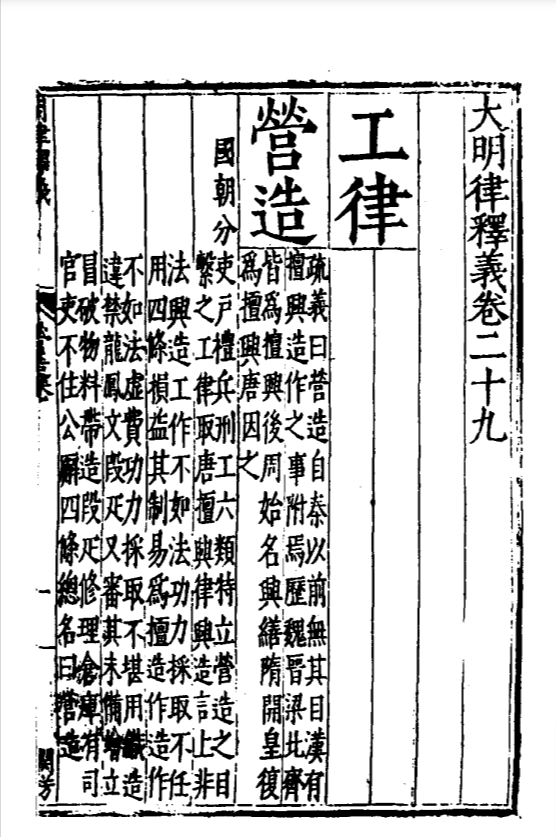 大明律釋義卷二十九
工律
營造
疏義曰營造自秦以前無其目漢有
擅興造作之事附焉歷魏晉梁北齊
皆爲擅興後周始名興繕隋開皇復
爲擅興唐因之
國朝分吏戶禮兵刑工六類特立營造之目
繫之工律取唐擅興律興造言上非
法興造工作不如法功力採取不任
用四條損益其制易爲擅造作造作
不如法虛費功力採取不堪用織造
違禁龍鳳文段疋又審其未備增立
冒破物料帶造段疋修理倉庫有司
官吏不住公廨四條總名曰營造
一